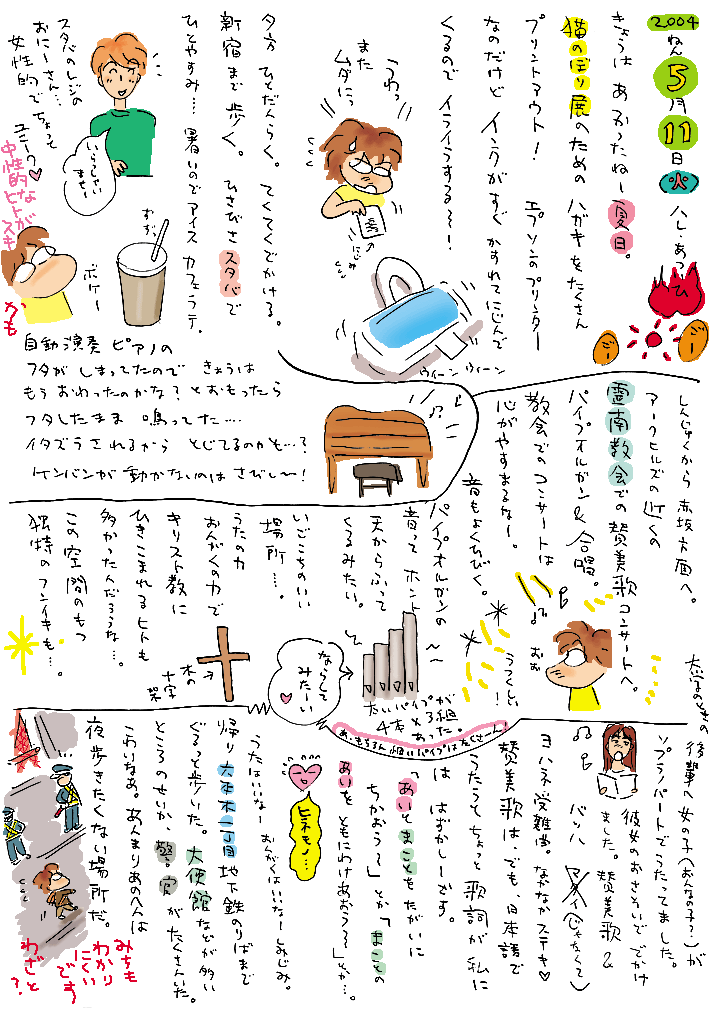 2004ねん5月11日火 ハレ・あつ
ひ
ゴー
ゴー
きょうは あつかったねー夏日。
猫のぼり展のための ハガキをたくさん
プリントアウト！ エプソンのプリンター
なのだけど インクがすぐ かすれてにじんで
くるので イライラする〜！
うわっ
また
ムダにっ
にじみ
ウィーン ウィーン
夕方 ひとだんらく。 てくてくでかける。
新宿まで歩く。 ひさびさ スタバで
ひとやすみ… 暑いのでアイス カフェラテ。
スタバのレジの
おにーさん…
女性的で ちょって
ユニーク♥
中性的な
ヒトがスキ
かも
いらっしゃい
ませー
ボケー
自動演奏 ピアノの
フタがしまってたので きょうは
もう おわったのかな？ とおもったら
フタしたまま 鳴ってた…
イタズラ されるから とじてるのかも…？
ケンバンが 動かないのは さびしー！
しんじゅくから 赤坂方面へ。
アークヒルズの近くの
霊南教会での 賛美歌コンサートへ。
パイプオルガン＆合唱。
教会でのコンサートは
心がやすまるなー。
音もよくひびく。
おお
うつくしい！
パイプオルガンの
音って ホント
天からふって
くるみたい。
いごこちのいい
場所…。
うたの力
おんがくの力で
キリスト教に
ひきこまれるヒトも
多かったんだろうな…。
この空間のもつ
独特のフンイキも…。
木の
十字架
ならして
みたーい
♥
太いパイプが
4本×3組
あった。
あ、もちろん 細いパイプはたくさーん！
大学のときの
後輩へ女の子（おんなの子？）が
ソプラノパートでうたってました。
彼女のおさそいで でかけ
ました。賛美歌＆
バッハ （じゃなくて）
ヨハネ受難曲。なかなかステキ♥
賛美歌は、でも、日本語で
うたうって ちょっと 歌詞が 私に
は はずかしーです。
「あいと まことを たがいに
ちかおう〜」とか「まことの
あいを ともにわけあおう〜」とか…。
ヒネモノ…
うたはいいなー おんがくはいいなー しみじみ。
帰り 六本木一丁目 地下鉄のりばまで
ぐるっと歩いた。大使館などが多い
ところのせいか、警官がたくさんいた。
こわいなあ。あんまりあのへんは
夜歩きたくない場所だ。
みちも
わかり
にくい
です
わざと
？